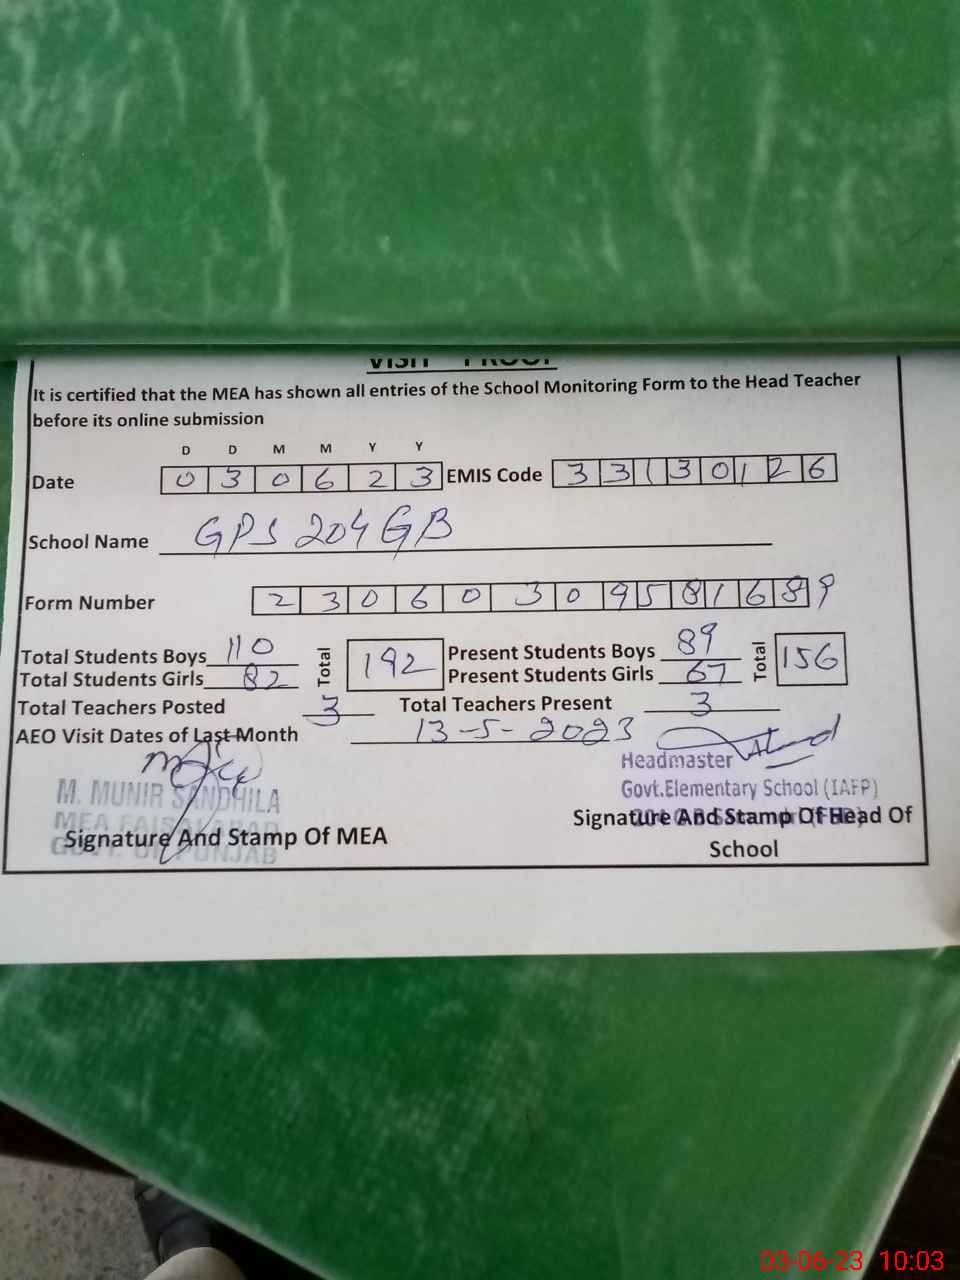 VISIT PROOF
It is certified that the MEA has shown all entries of the School Monitoring Form to the Head Teacher
before its online submission
D D M M Y Y
Date 0 3 0 6 2 3 EMIS Code 3 3 1 3 0 1 2 6
School Name GPS 204 GB
Form Number 2 3 0 6 0 3 0 9 5 8 1 6 8 9
Total Students Boys 110 Total 192 Present Students Boys 89 Total 156
Total Students Girls 82 Present Students Girls 67
Total Teachers Posted 3 Total Teachers Present 3
AEO Visit Dates of Last Month 13-5-2023
Headmaster
M. MUNIR SANDHILA Govt.Elementary School (IAFP)
MEA FAISALABAD
Signature And Stamp Of MEA Signature And Stamp Of Head Of
GOVT. OF PUNJAB School
03-06-23 10:03